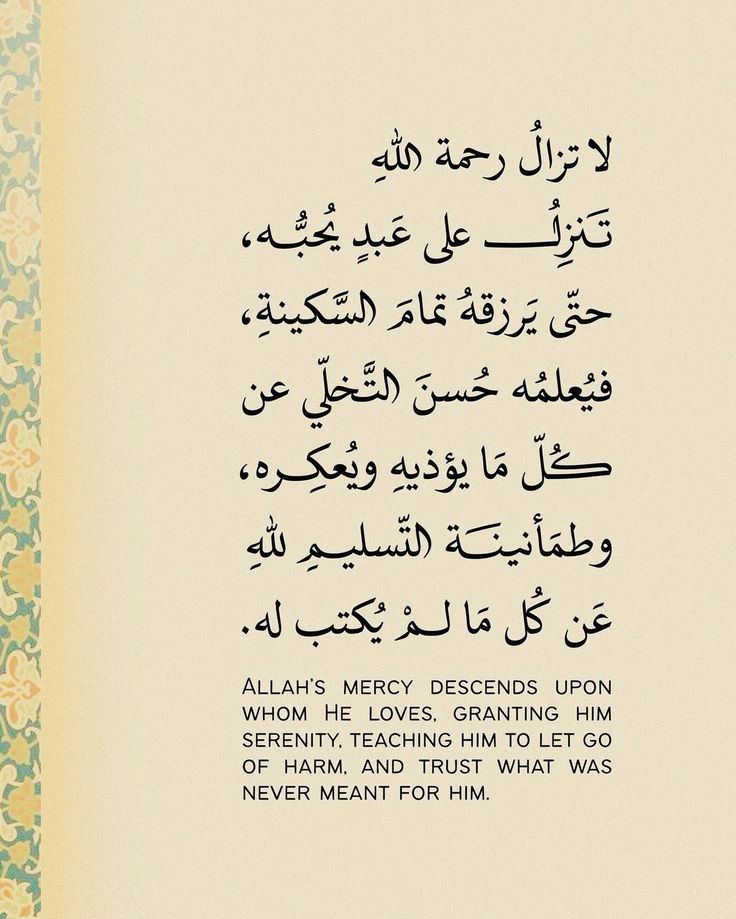 لا تزالُ رحمة اللهِ
تَنزِلُ على عَبدٍ يُحبُّه،
حتّى يَرزقهُ تمامَ السَّكينةِ،
فيُعلمُه حُسنَ التَّخلّي عن
كُلّ مَا يؤذيهِ ويُعكِره،
وطمَأنينَة التّسليمِ للهِ
عَن كُل مَا لمْ يُكتب له.
ALLAH'S MERCY DESCENDS UPON
WHOM HE LOVES, GRANTING HIM
SERENITY, TEACHING HIM TO LET GO
OF HARM, AND TRUST WHAT WAS
NEVER MEANT FOR HIM.